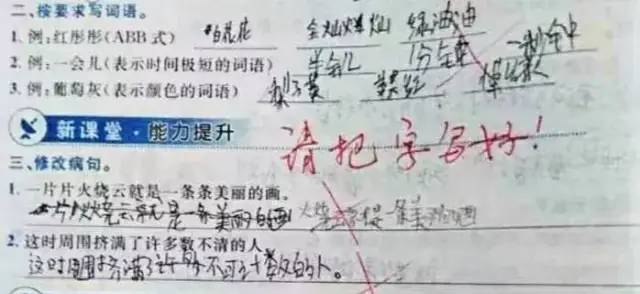 二、按要求写词语。
1. 例:红彤彤(ABB 式) 白花花 金灿灿 绿油油
2. 例:一会儿(表示时间极短的词语) 半会儿 1分钟 秒钟
3. 例:葡萄灰(表示颜色的词语)
新课堂·能力提升
请把字写好!
三、修改病句。
1. 一片片火烧云就是一条条美丽的画。
一片火烧云就是一条美丽的画
2. 这时周围挤满了许多数不清的人。
这时周围挤满了许多不可计数的人。